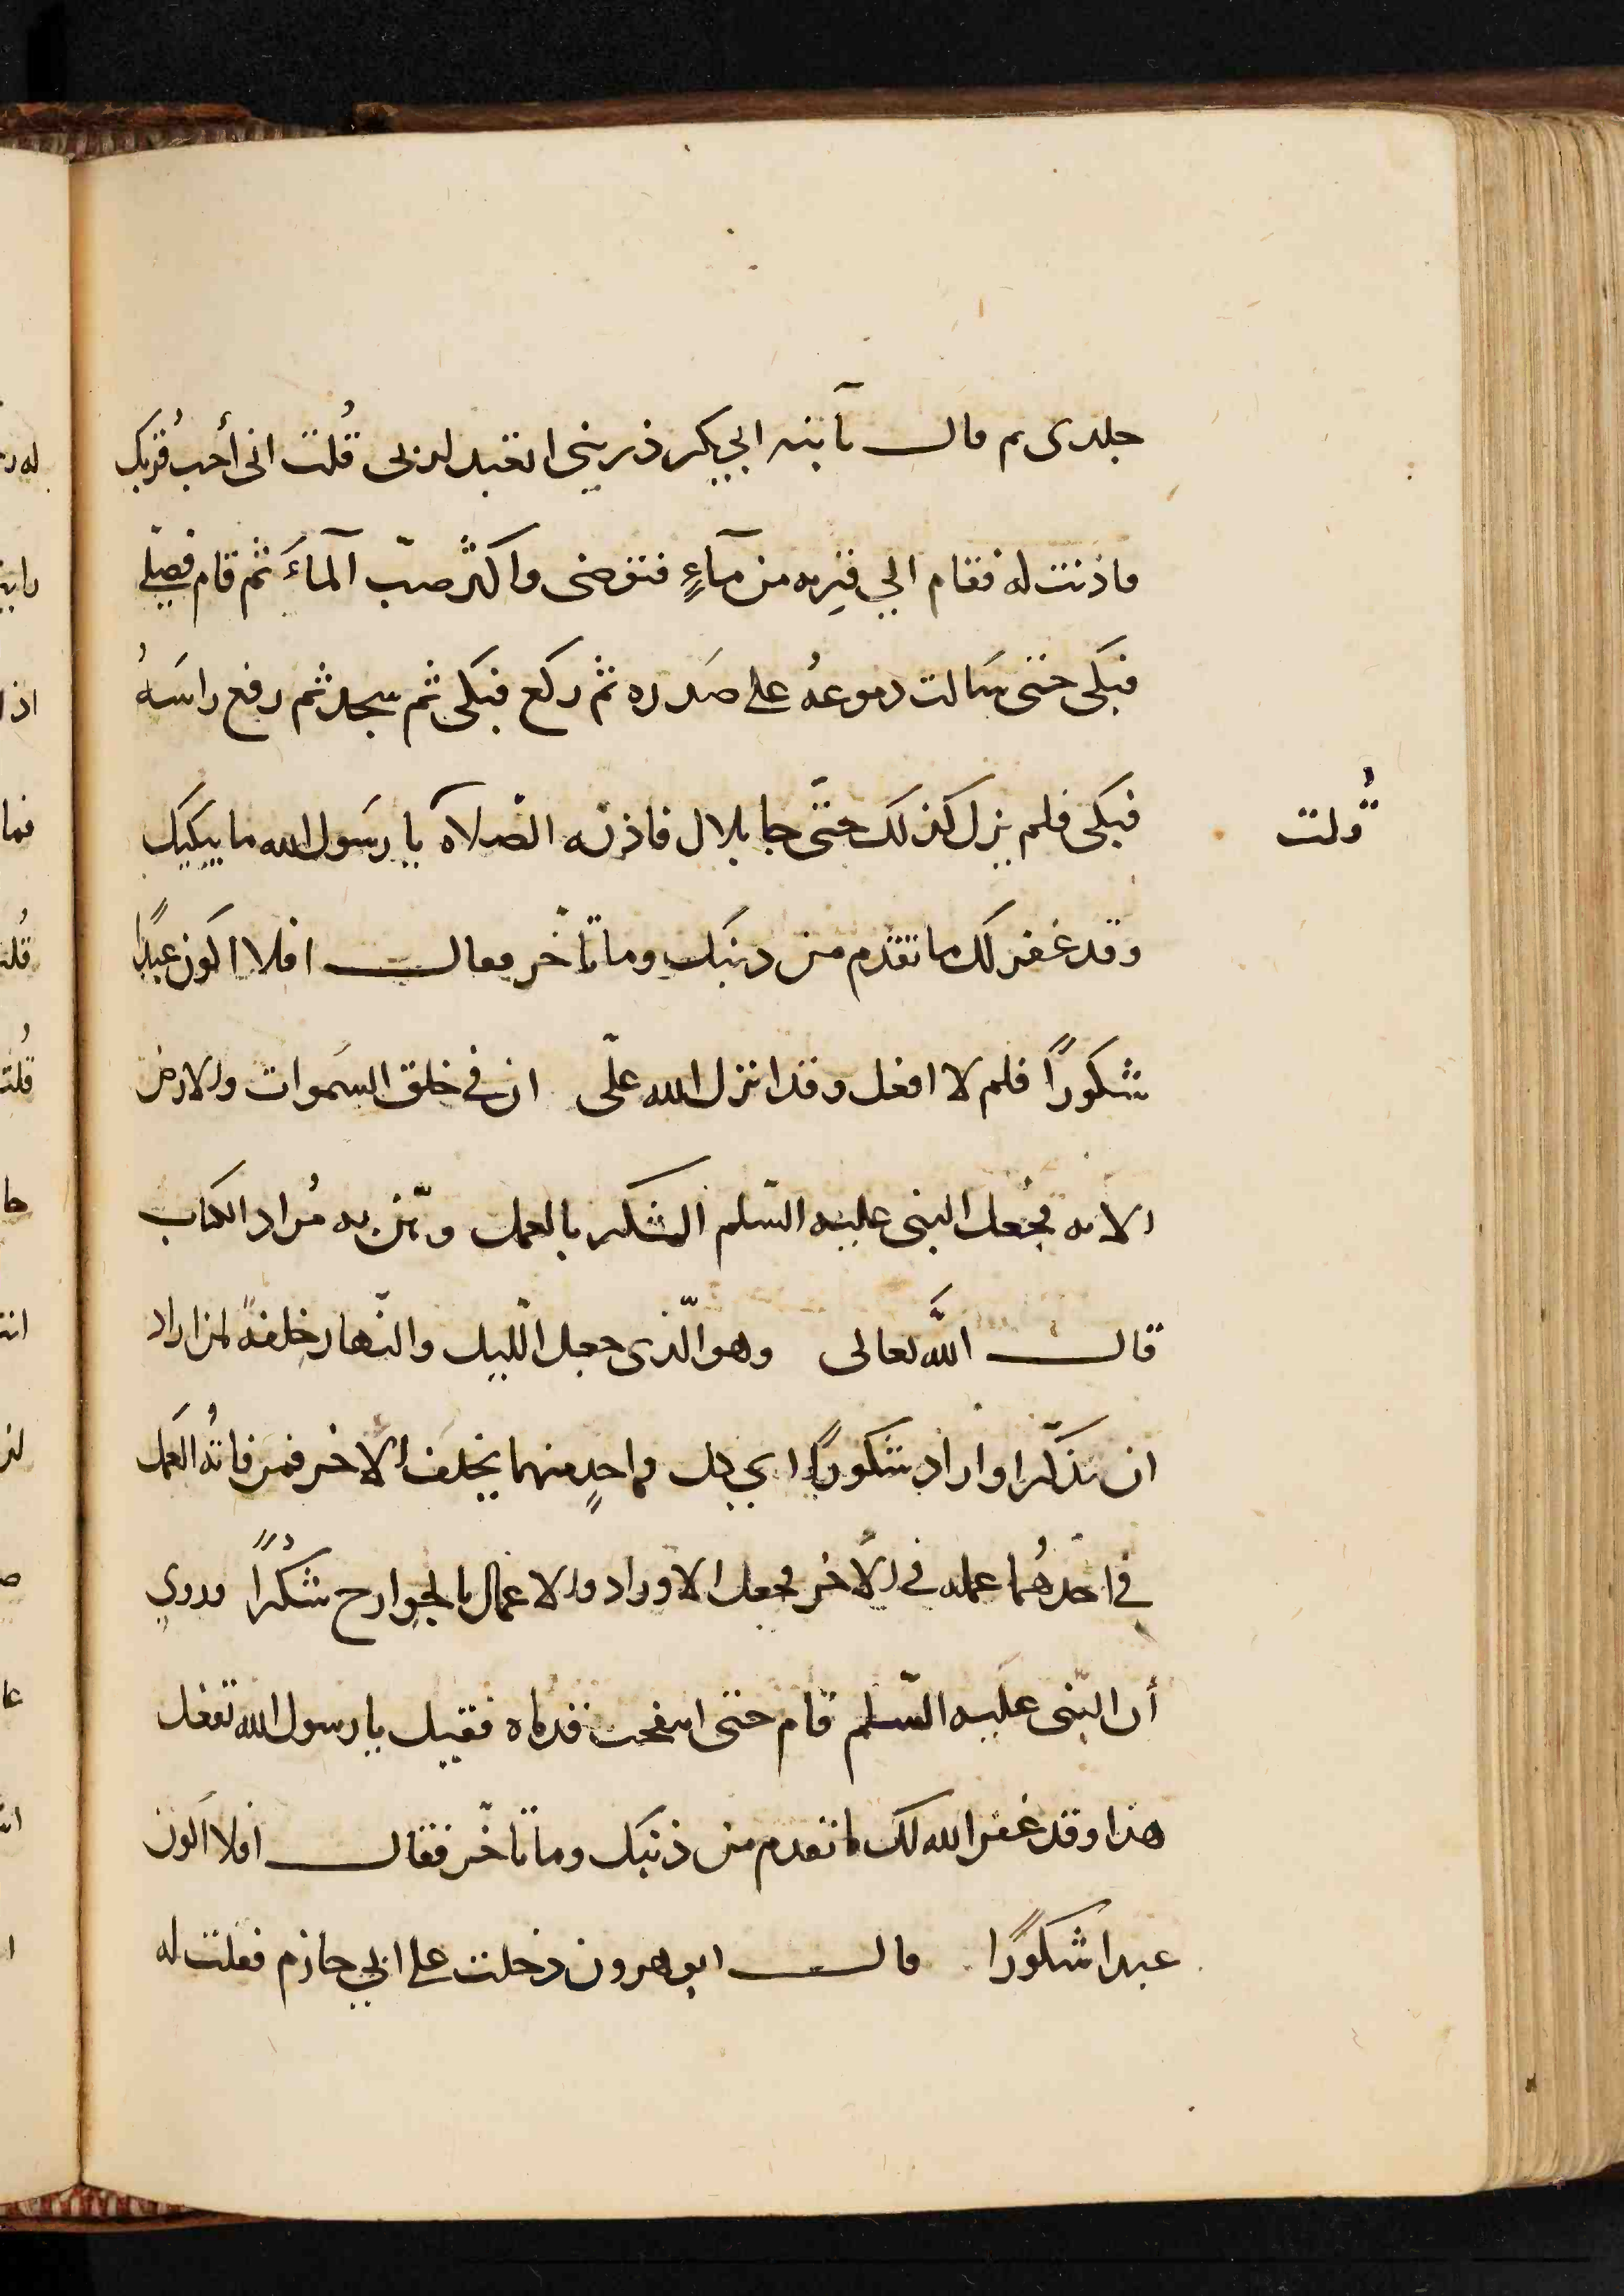 جلدى ثم قال يآبنه ابي بكر ذريني اتعبد لربى قُلت انى أحب قُربك
فاذنت له فقام الي قربه من مآءٍ فتوضى واكثر صبّ المآءَ ثم قام فصلى
فبكى حتى سَالت دموعهُ على صَدره ثم ركع فبكى ثم سجد ثم رفع راسَهُ
فبكى فلم يزل كذلك حتّى جا بلال فاذنه الصّلاه يا رسَول الله ما يبكيك
قُلت
وقد غفر لك ما تقدم من دنبك وما تأخّر فقال افلا اكون عبدًا
شكورًا فلم لا افعل وقد انزل الله علىّ ان في خلق السَموات والارض
الايه فجُعل النبى عليه السّلم الشكر بالعمل و به مُراد الكتاب
قال اللَّه تعالى وهو الّذى جعل الّليل والنّهار خِلفةً لمن اراد
ان يذّكّر او اراد شكورًا اي كل واحدٍ منهما يخلف الاخر فمن فاتهُ العَمل
في احَدهُما عمله في الآخر فجعل الاوراد والاعمال بالجوارح شكُرًا وروي
أن النّبى عليه السّلم قام حتى انتفخت قدماه فقيل يا رسول الله تفعل
هذا وقد غفر الله لك ما تقدم من ذنبك وما تأخّر فقال افلا اكون
عبدا شكورًا قال ابو هرون دخلت على ابي حازم فقلت له